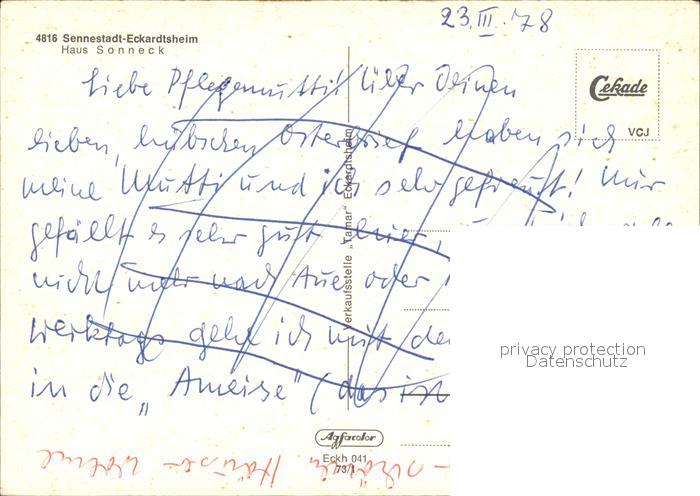 23.III.78
4816 Sennestadt-Eckardtsheim
Haus Sonneck
Liebe Pflegemutti! Über Deinen
Cekade
VCJ
lieben, hübschen Osterbrief haben sich
meine Mutti und ich sehr gefreut! Mir
gefällt es sehr gut hier,
nicht mehr nach Aue oder
Werktags gehe ich mit
in die „Ameise" (das ist
Verkaufsstelle „Tamar" Eckardtsheim
privacy protection
Datenschutz
Agfacolor
Eckh 041
73/1